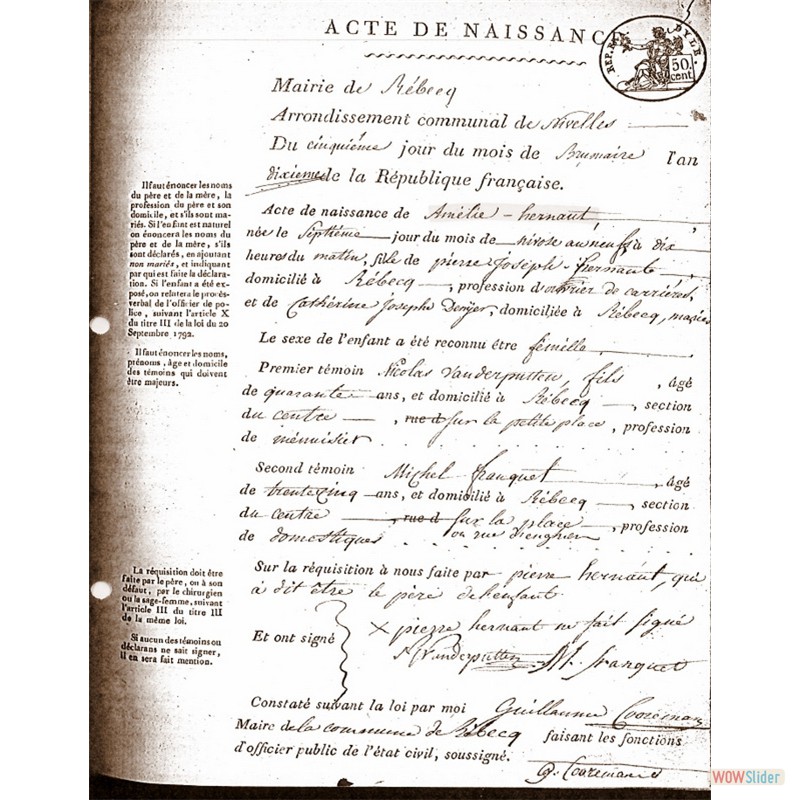 ACTE DE NAISSANCE
REP. F. DYLE.
50. cent.
Mairie de Rébecq
Arrondissement communal de Nivelles
Du cinquième jour du mois de Brumaire l'an
dixieme de la République française.
Acte de naissance de Amélie - hernaut,
née le Septième jour du mois de nivose an neuf, à dix
heures du matin, fille de pierre Joseph - hernaut
domicilié à Rébecq, profession d'ouvrier de carrière,
et de Cathérine Josephe Denijer, domiciliée à Rébecq, mariés
Le sexe de l'enfant a été reconnu être femelle
Premier témoin Nicolas Vanderputten, fils, âgé
de quarante ans, et domicilié à Rébecq, section
du centre, rue d sur la petite place, profession
de ménuisier
Second témoin Michel franquet, âgé
de trente cinq ans, et domicilié à Rébecq, section
du centre, rue d sur la place, profession
de domestiques ou rue d'enghien
Sur la réquisition à nous faite par pierre hernaut, qui
à dit être le père de l'enfant
Et ont signé X pierre hernaut ne sait signé
N Vanderputten M. franquet
Constaté suivant la loi par moi Guillaume Cooreman
Maire de la commune de Rébecq faisant les fonctions
d'officier public de l'état civil, soussigné.
G. Cooremans
Il faut énoncer les noms
du père et de la mère, la
profession du père et son
domicile, et s'ils sont ma-
riés. Si l'enfant est naturel
on énoncera les noms du
père et de la mère, s'ils
sont déclarés, en ajoutant
non mariés, et indiquant
par qui est faite la déclara-
tion. Si l'enfant a été ex-
posé, on relatera le procès-
verbal de l'officier de po-
lice, suivant l'article X
du titre III de la loi du 20
Septembre 1792.
Il faut énoncer les noms,
prénoms, âge et domicile
des témoins qui doivent
être majeurs.
La réquisition doit être
faite par le père, ou à son
défaut, par le chirurgien
ou la sage-femme, suivant
l'article III du titre III
de la même loi.
Si aucun des témoins ou
déclarans ne sait signer,
il en sera fait mention.
WOWSlider